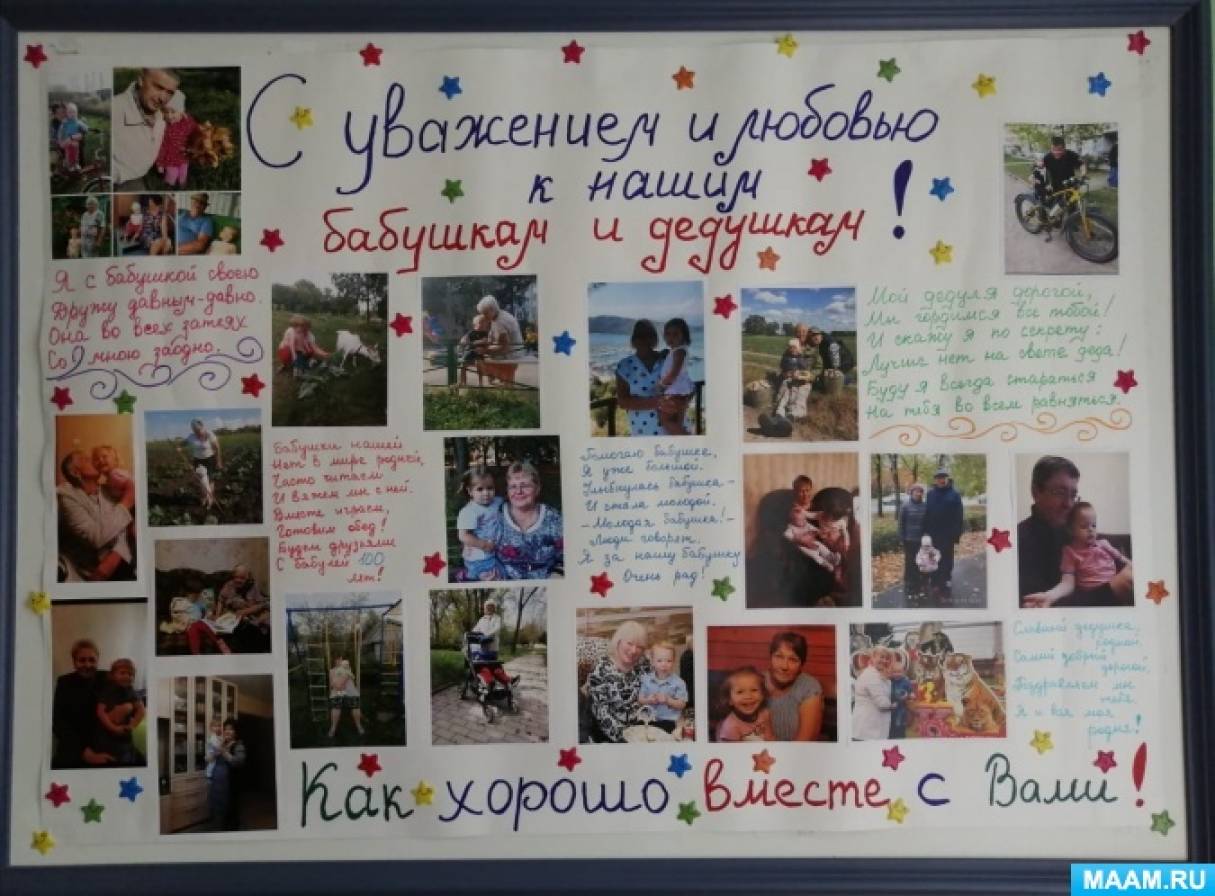 С уважением и любовью
к нашим
бабушкам и дедушкам!
Я с бабушкой своею
Дружу давным-давно.
Она во всех затеях
Со мною заодно.
Мой дедуля дорогой,
Мы гордимся все тобой!
И скажу я по секрету:
Лучше нет на свете деда!
Буду я всегда стараться
На тебя во всём равняться.
Бабушки нашей
Нет в мире родней,
Часто читаем
И вяжем мы с ней.
Вместе играем,
Готовим обед!
Будем друзьями
С бабулей 100
лет!
Помогаю бабушке,
Я уже большой.
Улыбнулась бабушка -
И стала молодой.
- Молодая бабушка! -
Люди говорят.
Я за нашу бабушку
Очень рад!
Славный дедушка,
родной,
Самый добрый,
дорогой.
Поздравляем мы
тебя
Я и вся моя
родня!
Как хорошо вместе с Вами!
MAAM.RU